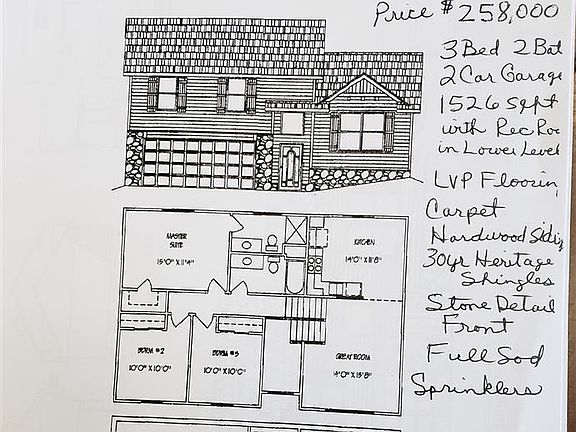 Price $258,000
3 Bed 2 Bat
2 Car Garage
1526 sqft
with Rec Roo
in Lower Level
LVP Flooring
Carpet
Hardwood Siding
30yr Heritage
Shingles
Stone Detail
Front
Full Sod
Sprinklers
MASTER
SUITE
15'0" X 11'4"
KITCHEN
14'0" X 11'8"
BDRM #2
10'0" X 10'0"
BDRM #3
10'0" X 10'0"
GREAT ROOM